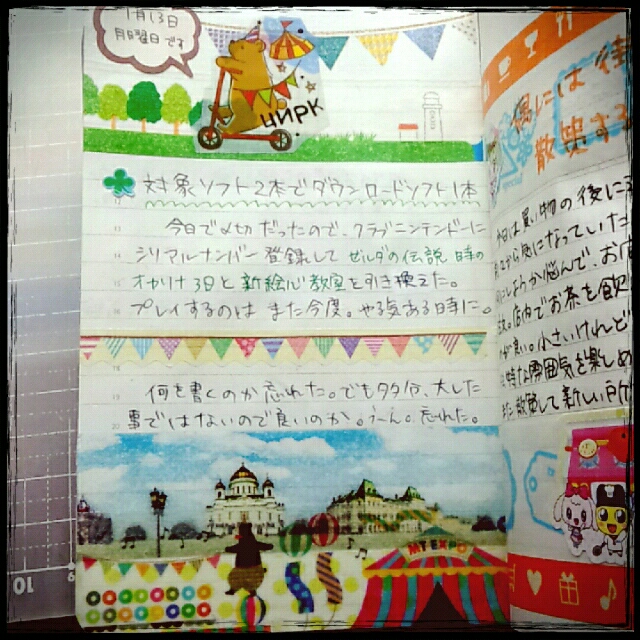 1月13日
月曜日です
ЦИРК
対象ソフト2本でダウンロードソフト1本
今日で〆切だったので、クラブニンテンドーに
シリアルナンバー登録して ゼルダの伝説 時の
オカリナ3Dと新絵心教室を引き換えた。
プレイするのは また今度。やる気ある時に。
何を書くのか忘れた。でも多分、大した
事ではないので良いのか。うーん。忘れた。
偶には 街
散歩する
今日は買い物の後に
から気になっていた
にしようか悩んで、お店
店内でお茶を飲
が良い。小さいけれど
特な雰囲気を楽しめ
散策して新しい
10